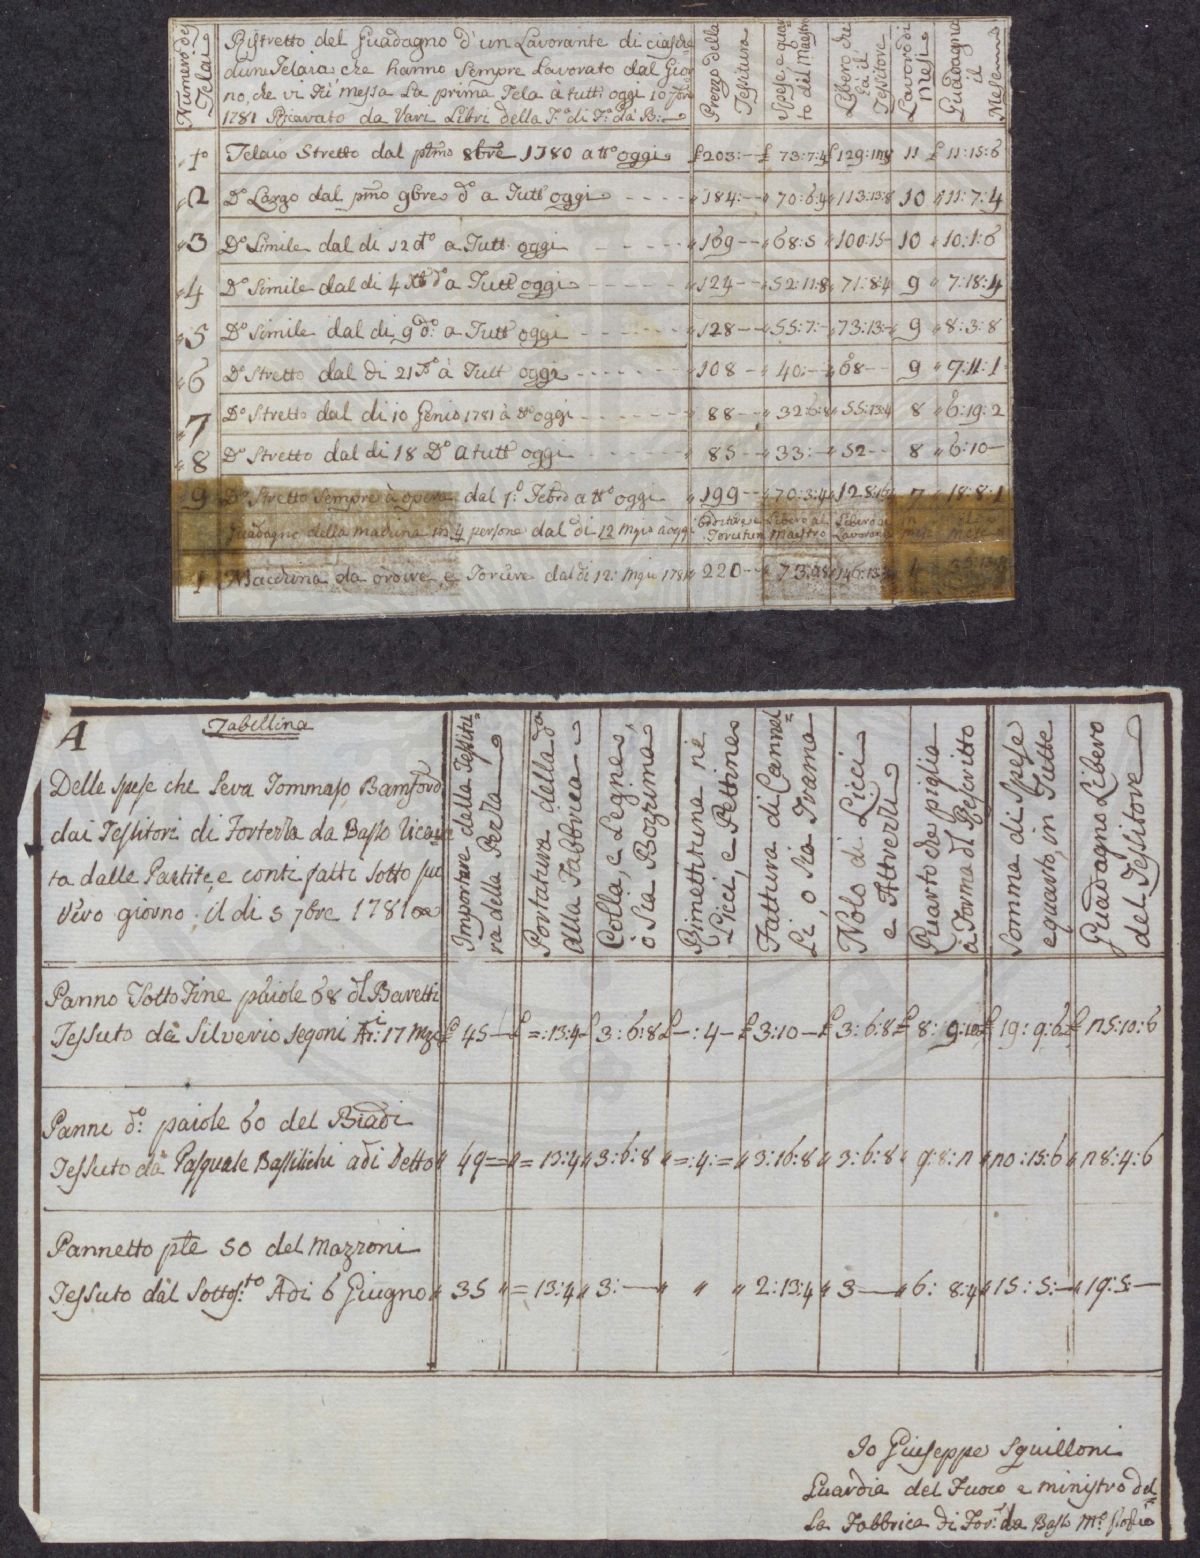 Numero dei Telai
Ristretto del Guadagno d'un Lavorante di ciasche
dune Telara che hanno sempre Lavorato dal Gior
no, che vi fù messa La prima Tela à tutti oggi 10 7bre
1781 Ricavato da Vari Libri della F.a di F.a da B:
Prezzo della Tessitura
Spese e quar to del Maestro
Libero che fa il Tessitore
Lavoro di Mesi
Guadagna il Mese
1º Telaio Stretto dal pmo 8bre 1780 a tto oggi £203:— £ 73:7:4 £129: 11 £ 11:15:6
"2 Dº Largo dal pmo 9bre dº a Tutt oggi - - - - "184:— "70:6:4 "113:13:8 10 "11:7:4
"3 Dº Simile dal di 12 dtº a Tutt oggi - - - - "169— "68:5 "100:15— 10 "10:1:6
"4 Dº Simile dal di 4 Xb dº a Tutt oggi - - - - "124— "52:11:8 "71:8:4 9 "7:18:4
"5 Dº Simile dal di 9 dº: a Tutt oggi - - - - "128— "55:7:— "73:13— 9 "8:3:8
"6 Dº Stretto dal di 21 dº à Tutt oggi - - - - "108 — "40:— "68— 9 "7:11:1
"7 Dº Stretto dal di 10 Genio 1781 à tto oggi - - - - "88 — "32:6:8 "55:13:4 8 "6:19:2
"8 Dº Stretto dal di 18 Dº a tutt oggi - - - - "85 — "33:— "52— 8 "6:10—
"9 Dº Stretto Sempre à opera dal 1:º Febro a tto oggi "199— "70:3:4 "128:16 7 "18:8:1
Guadagno della machina in 4 persone dal di 12 Mgio à oggi Orditure e Torciture Libero al Maestro Libero ai Lavoranti in mesi mese
1 Macchina da ordire, e Torcere dal di 12: Mgio 1781 "220— "73:
A
Tabellina
Delle spese che Leva Tommaso Bamford
dai Tessitori di Forterza da Basso Ricava
ta dalle Partite, e conti fatti Sotto fu
Vero giorno il di 5 7bre 1781
Importare della Tessitu=
ra della Pezza
Portatura della dª
alla Fabbrica
Colla, e Legne,
ò Sia Bozzima
Rimettitura ne
Licci, e Pettine
Fattura di Cannel=
Li, o Sia Trama
Nolo di Licci
e Attrezzi
Quarto che piglia
à Forma del Prescritto
Somma di Spese
e quarto, in Tutte
Guadagno Libero
del Tessitore
Panno Sotto Fine paiole 68 dl Baretti
Tessuto da Silverio Segoni 17 Mgio £ 45 — £ =:13:4 £ 3:6:8 £ —:4— £ 3:10— £ 3:6:8 £ 8:9:10 £ 19:9:6 £ 25:10:6
Panni dº: paiole 60 del Biadi
Tessuto da Pasquale Bassilichi adi Detto " 49== "= 13:4 "3:6:8 "=:4:= "3:16:8 "3:6:8 " 9:8:2 "20:15:6 "28:4:6
Pannetto pte 50 del Mazzoni
Tessuto dal Sottos:to Adi 6 Giugno " 35 "= 13:4 "3:— " " "2:13:4 "3— "6:8:4 "15:5:— "19:5:—
Io Giuseppe Squilloni
Guardia del Fuoco e ministro del=
La Fabbrica di For: da Basso Mº